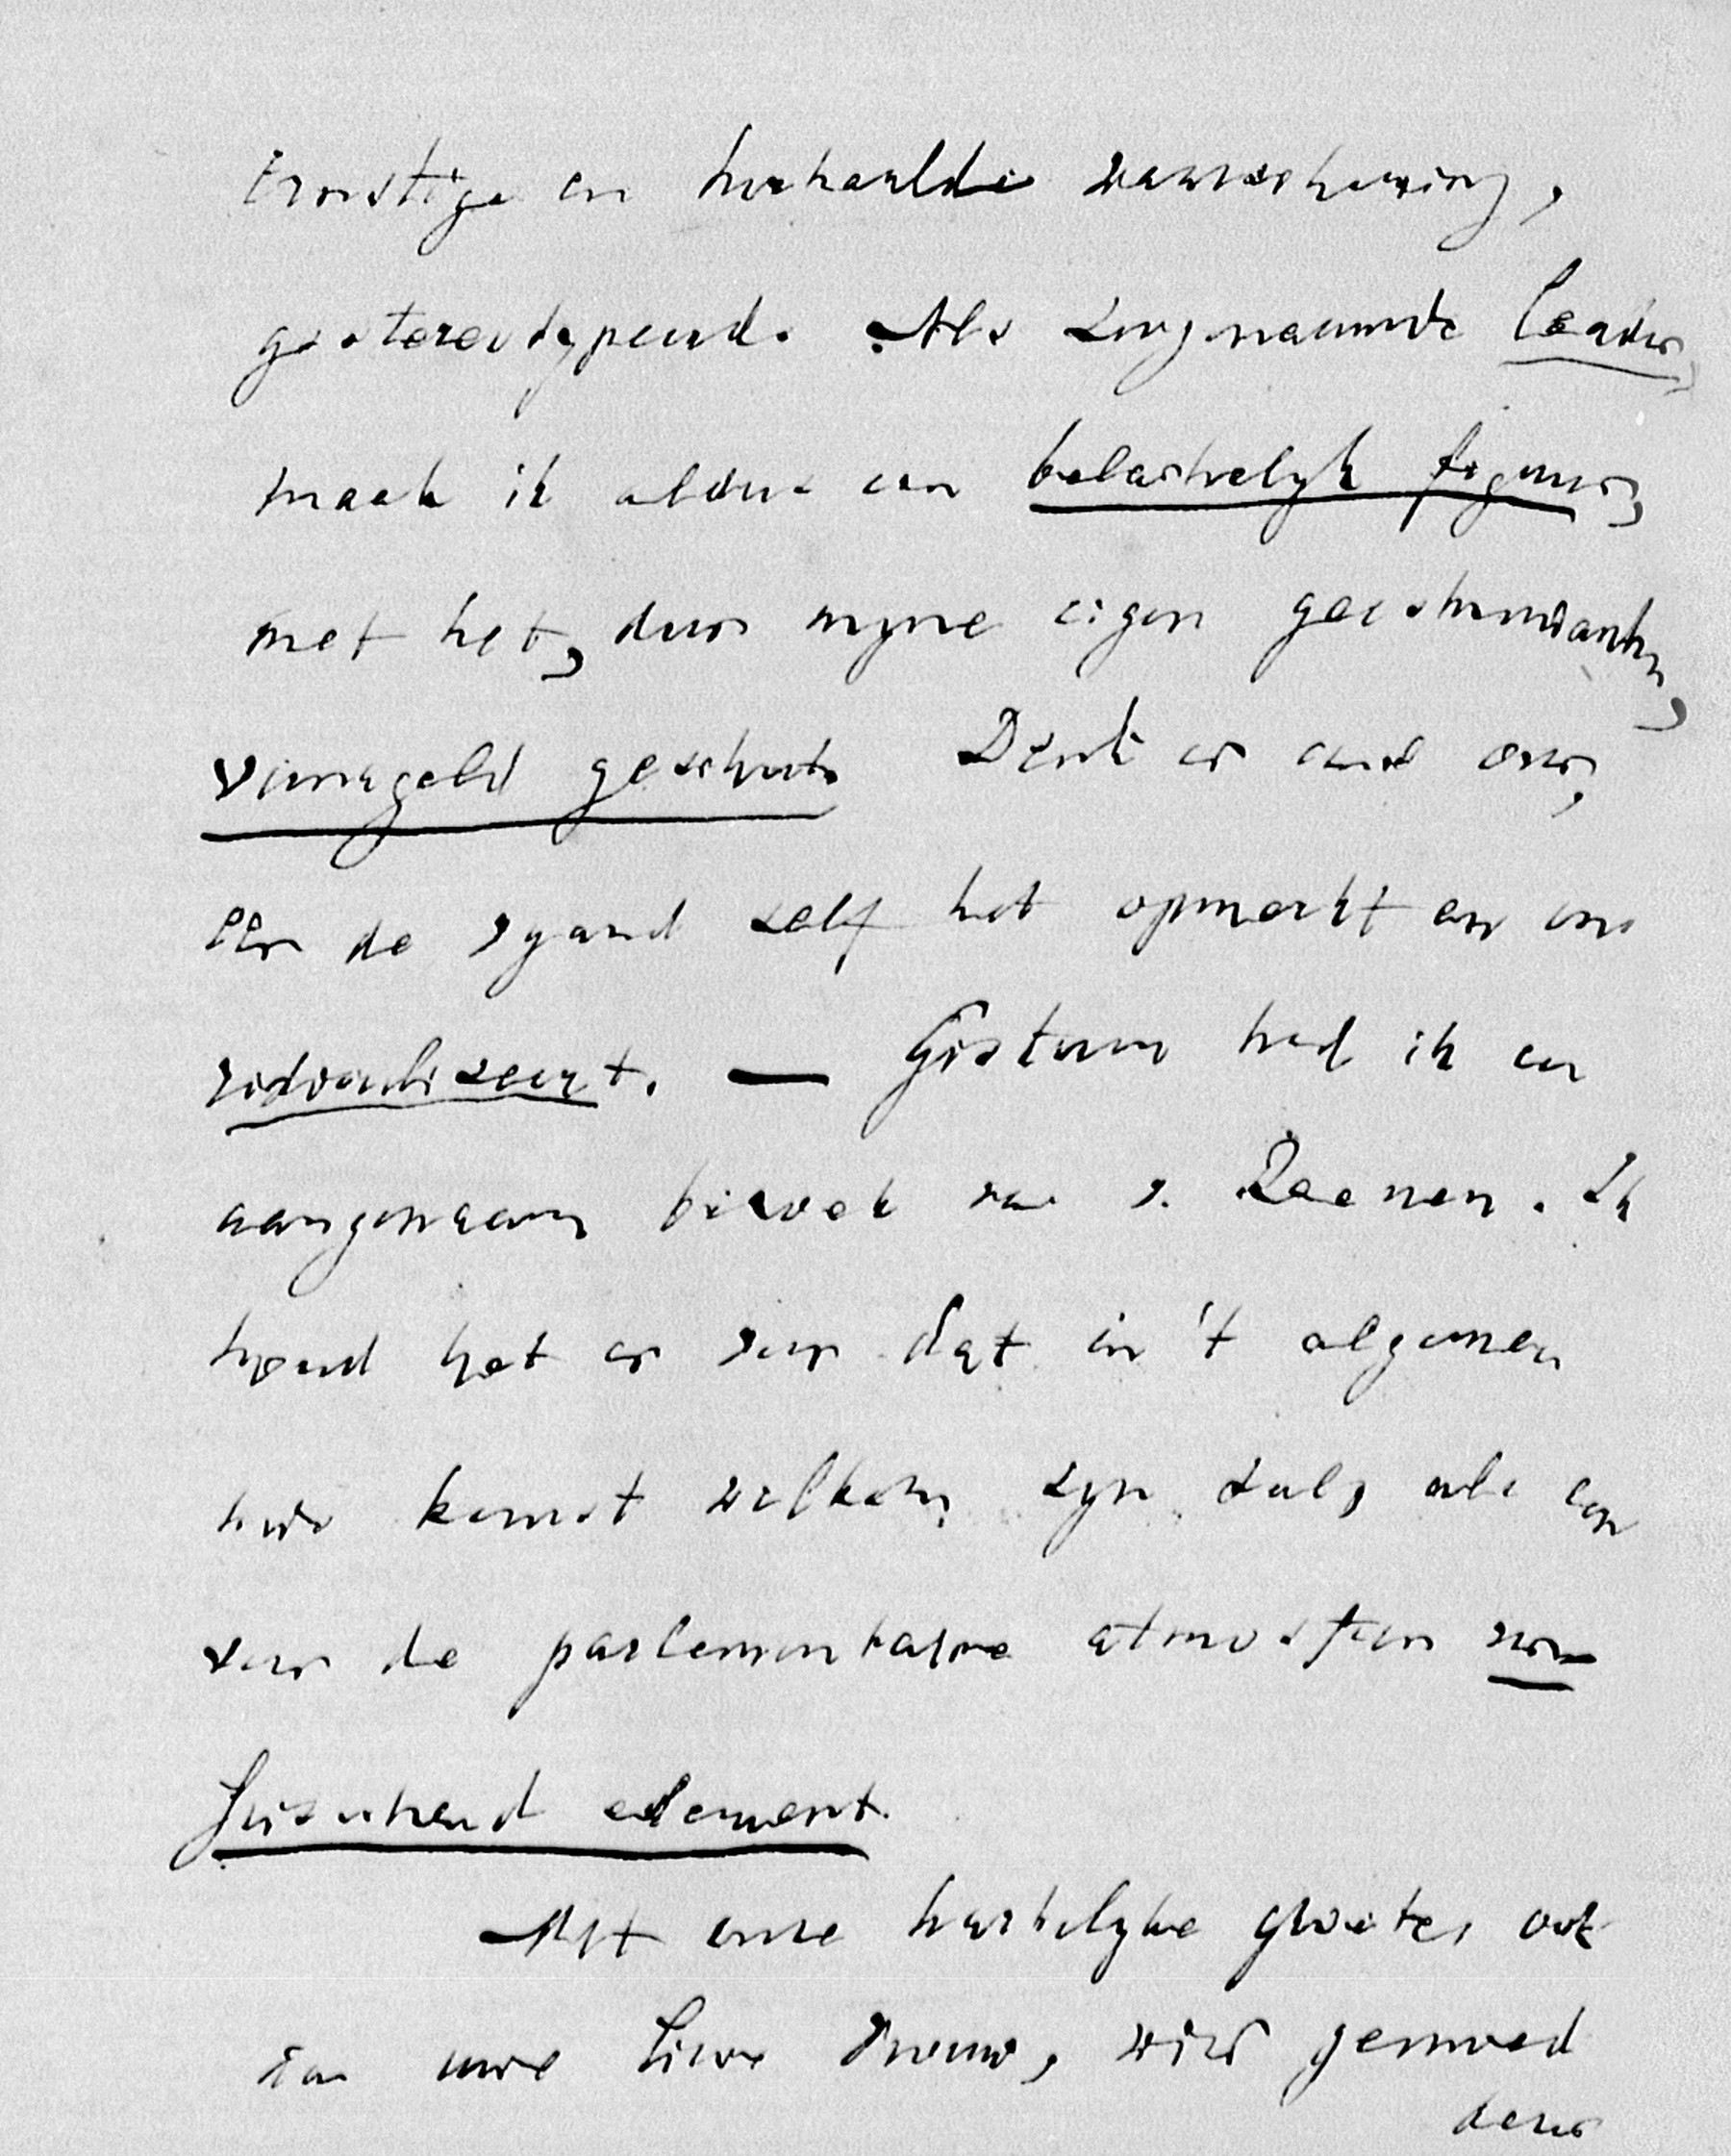 Ernstige en herhaalde waarschuwing,
gestereotypeerd. Als zoogenaamde leader,
maak ik aldus een belachelyk figuur,
met het, door myne eigen geestverwanten,
vernageld geschut. Denk er eens over,
eer de vyand zelf het opmerkt en ons
ridiculiseert. — Gisteren had ik een
aangenaam bezoek van v. Reenen. Ik
houd het er voor dat in 't algemeen
zyn zal, als een
voor de parlementaire atmosfeer
element.
Met onze hartelyke groete, ook
aan uwe lieve vrouw, wird genoemd
door